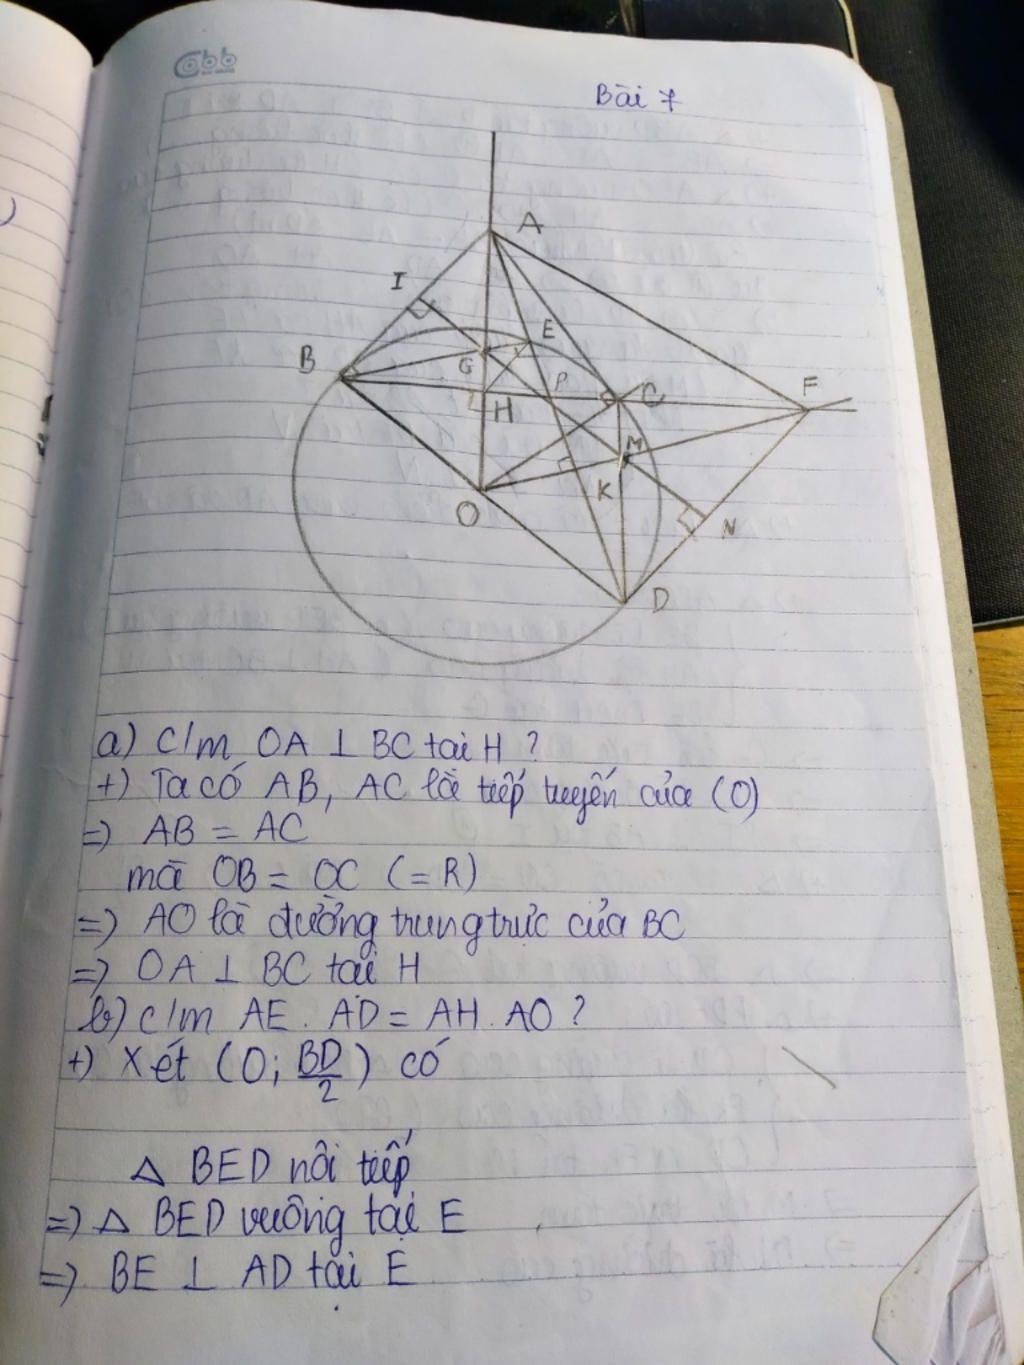 Cabb
Bài 7
A
I
E
B
G
P
F
C
H
M
K
O
N
D
a) C/m OA ⊥ BC tại H ?
+) Ta có AB, AC là tiếp tuyến của (O)
=) AB = AC
mà OB = OC (= R)
=) AO là đường trung trực của BC
=) OA ⊥ BC tại H
b) C/m AE . AD = AH . AO ?
+) Xét (O; BD/2) có
△ BED nội tiếp
=) △ BED vuông tại E
=) BE ⊥ AD tại E